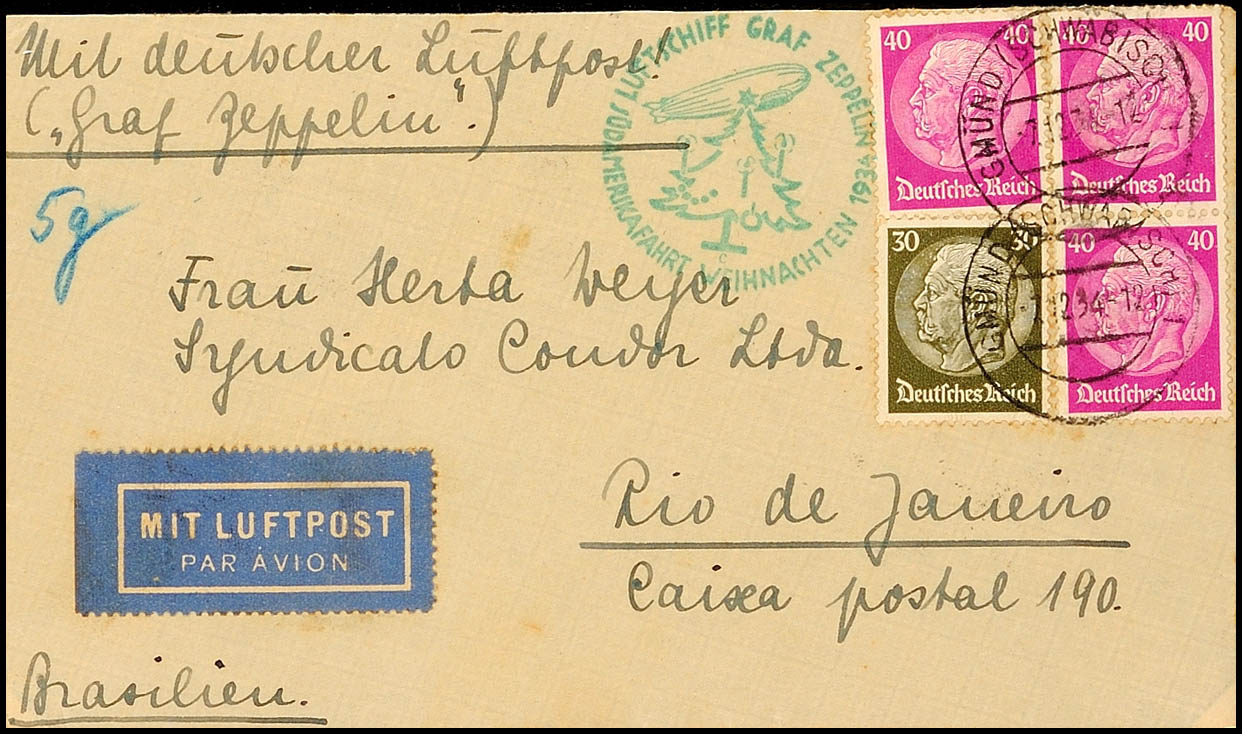 Mit deutscher Luftpost!
(„Graf Zeppelin“.)
LUFTSCHIFF GRAF ZEPPELIN 1934
SÜDAMERIKAFAHRT WEIHNACHTEN
c
40 40
Deutsches Reich
40 40
Deutsches Reich
30 30
Deutsches Reich
40 40
Deutsches Reich
GMÜND (SCHWÄBISCH)
-7.12.34.-12
GMÜND (SCHWÄBISCH)
-7.12.34.-12
5g
Frau Herta Weyer
Syndicato Condor Ltda.
MIT LUFTPOST
PAR AVION
Rio de Janeiro
Caixa postal 190.
Brasilien.